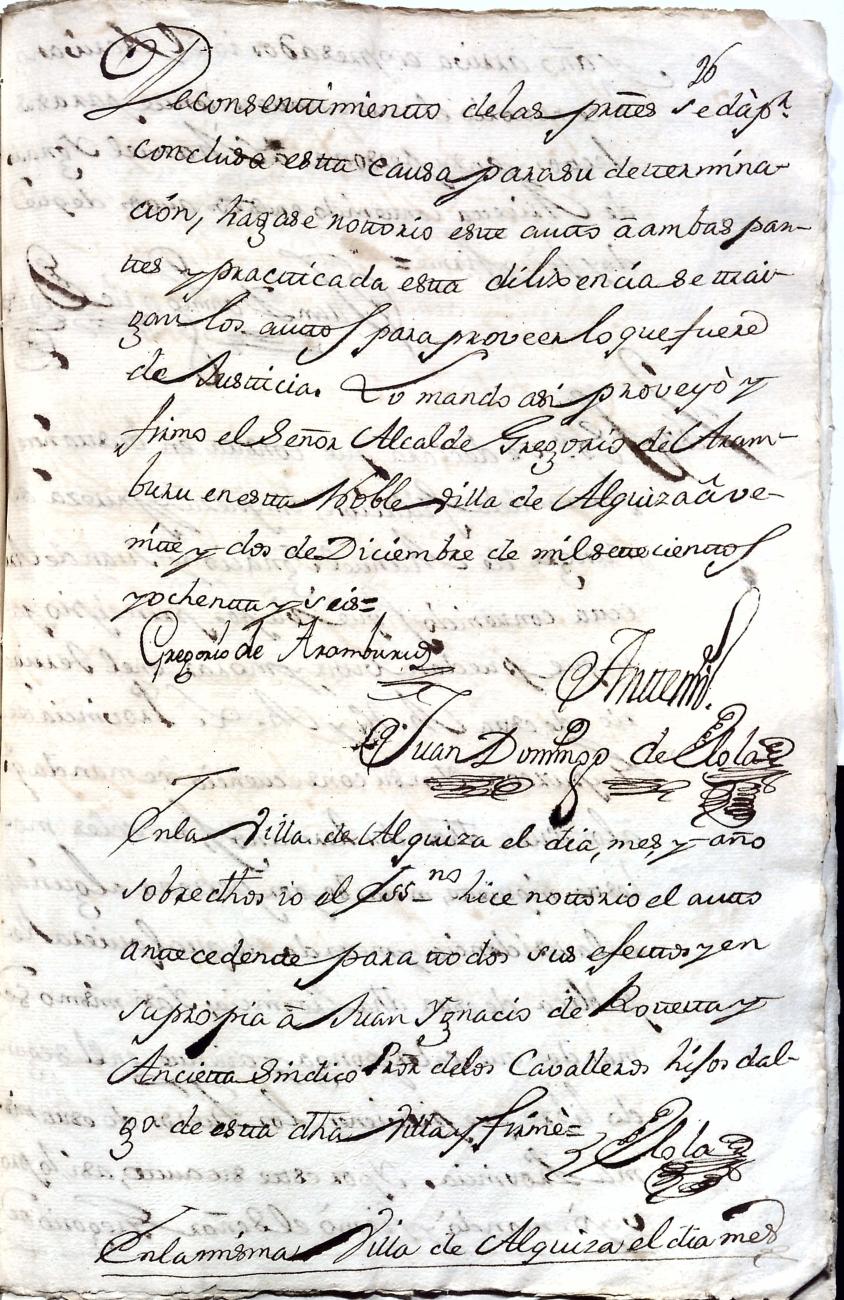 26
De consenttimientto delas prttes se dà pr.
conclusa estta causa para su dettermina-
ción, hagase nottorio este autto ã ambas par-
ttes y practticada estta dilixencia se ttrai-
gan los auttos para proveer lo que fuere
de Justticia. Lo mando asi proveyò y
firmo el Señor Alcalde Gregorio de Aram-
buru en estta Noble villa de Alquiza ã ve-
intte y dos de Diciembre de mil settecienttos
y ochentta y seis=
Gregorio de Aramburu
Anttemi.
Juan Domingo de Elola
En la Villa de Alquiza el dia, mes, y año
sobredhos io el Essno hice nottorio el autto
anttecedentte para ttodos sus efecttos y en
su propia ã Juan Ygnacio de Rottetta y
Ancietta Sindico Pror delos Cavalleros hijos dal-
go de estta dha Villa y firmè=
Elola
En la misma Villa de Alquiza el dia mes